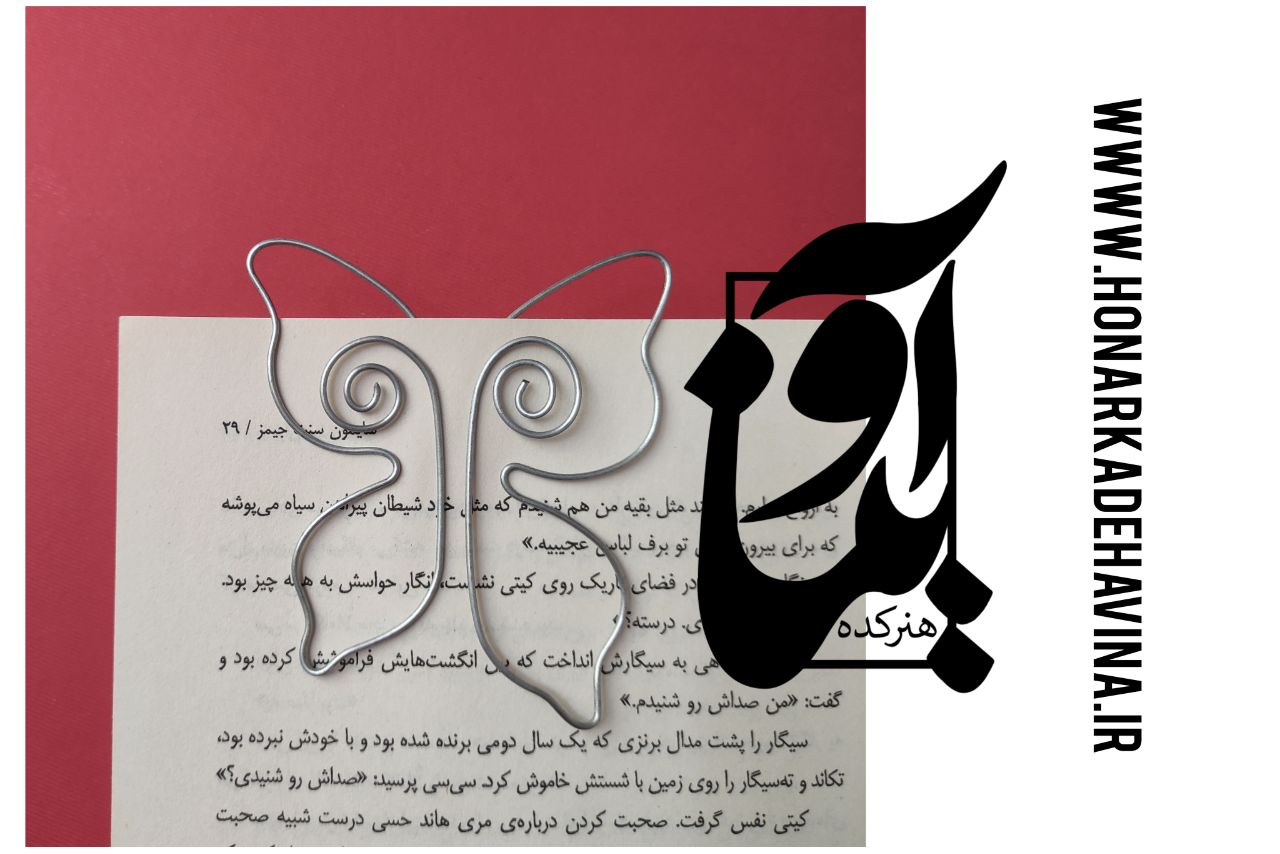 سایمون سنت جیمز / ۲۹
مثل بقیه من هم شنیدم که مثل خود شیطان پیراهن سیاه می‌پوشه
که برای بیرون تو برف لباس عجیبیه.»
در فضای تاریک روی کیتی نشست، انگار حواسش به همه چیز بود.
درسته؟»
به سیگارش انداخت که بین انگشت‌هایش فراموشش کرده بود و
گفت: «من صداش رو شنیدم.»
سیگار را پشت مدال برنزی که یک سال دومی برنده شده بود و با خودش نبرده بود،
تکاند و ته‌سیگار را روی زمین با شستش خاموش کرد. سی‌سی پرسید: «صداش رو شنیدی؟»
کیتی نفس گرفت. صحبت کردن درباره‌ی مری هاند حسی درست شبیه صحبت
آوینا
هنرکده
WWW.HONARKADEHAVINA.IR